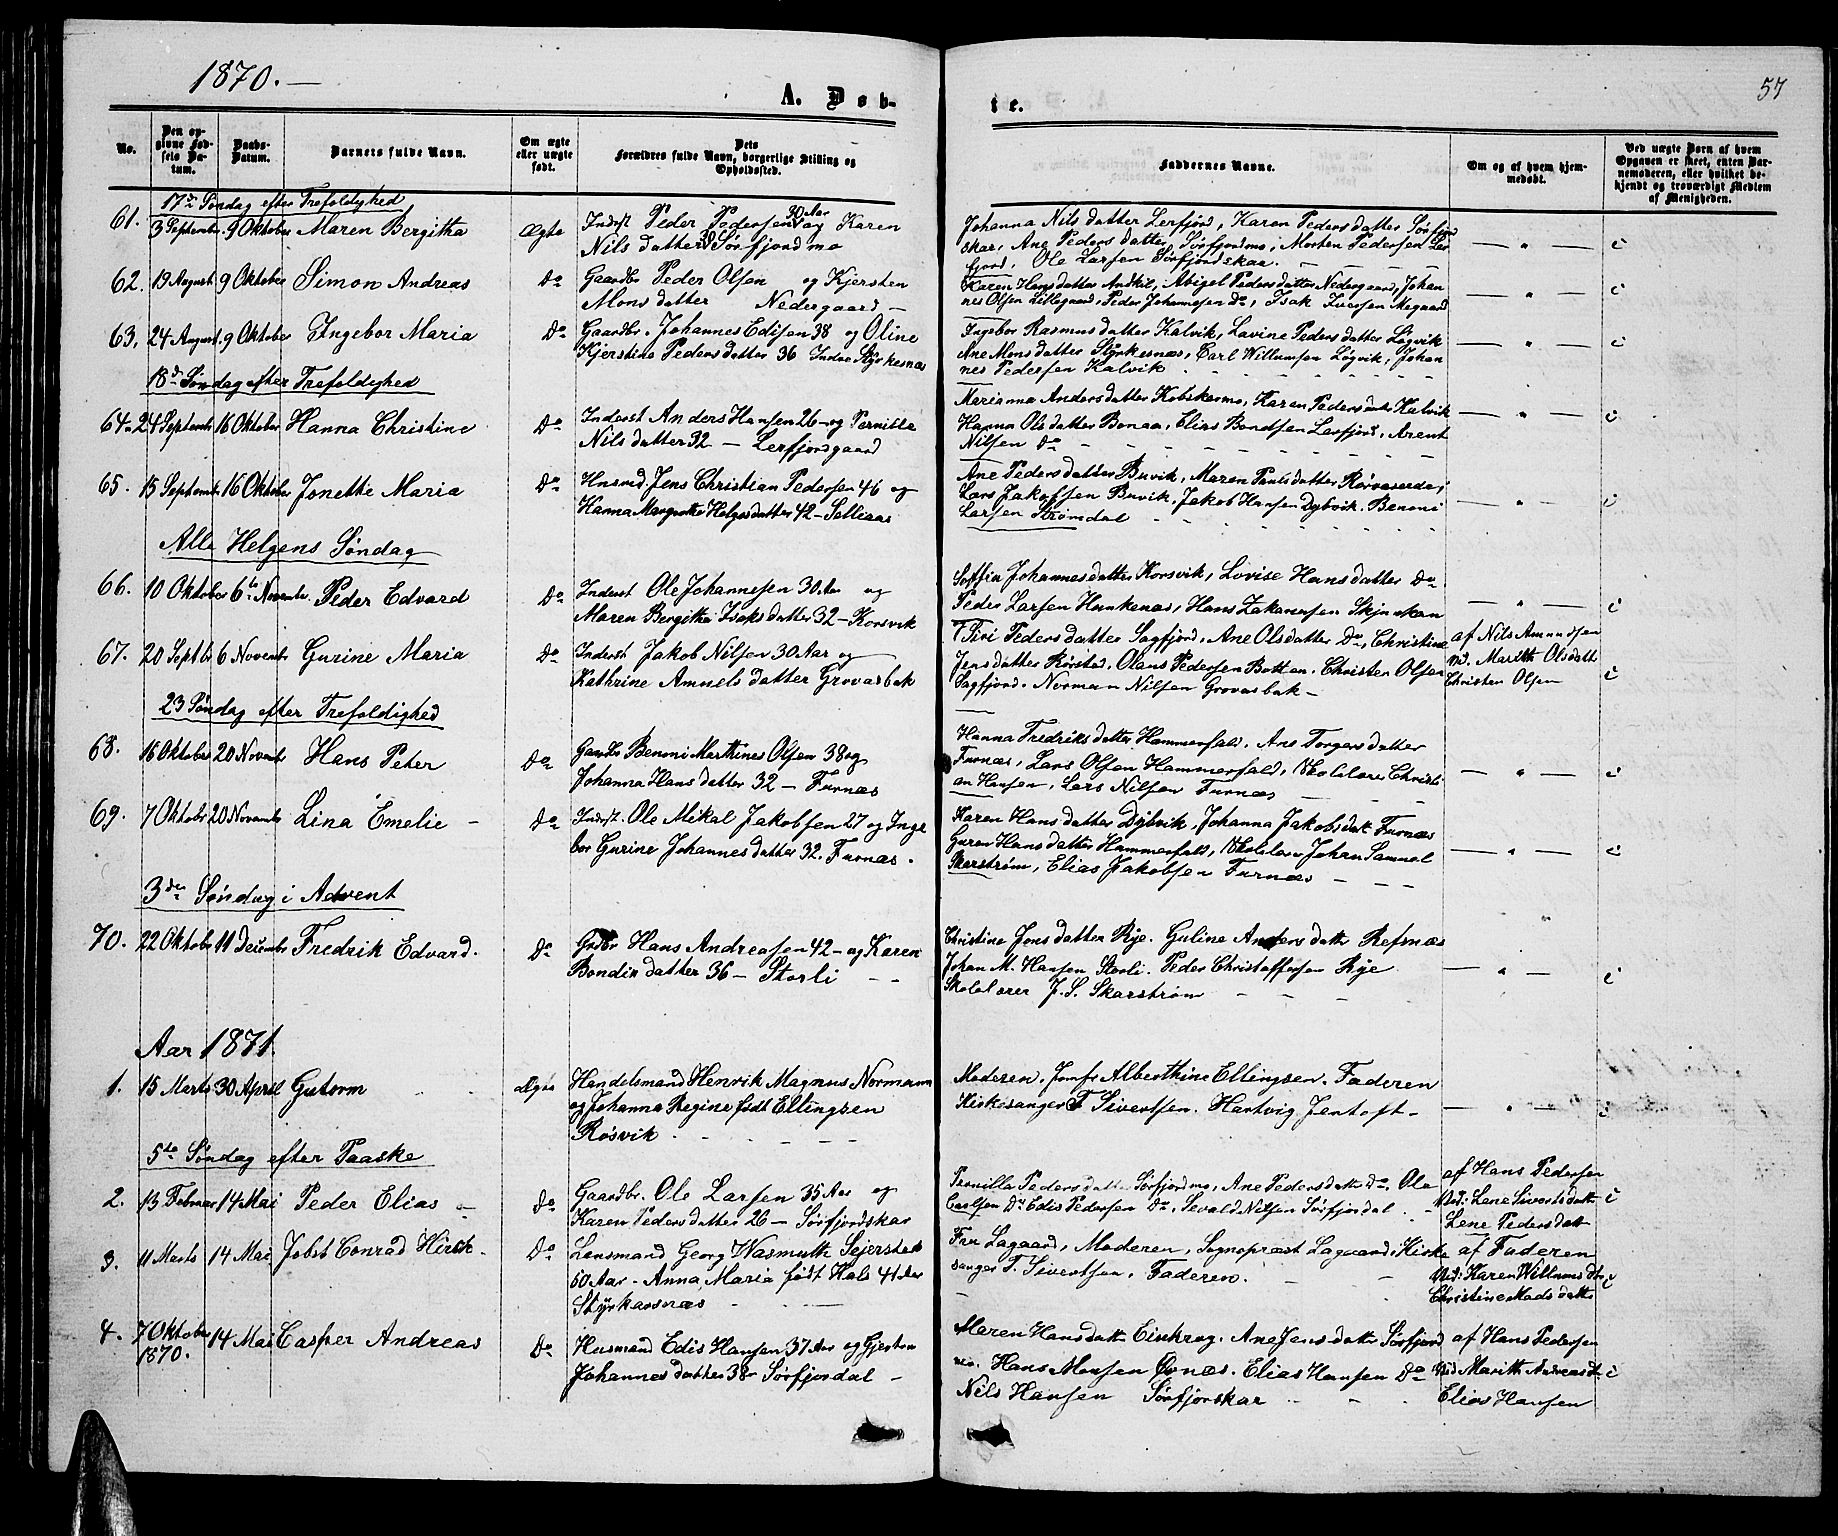 1870.—
57
A. Døb-
te.
No.
Den opgivne Fødsels Datum.
Daabs-Datum.
Barnets fulde Navn.
Om ægte eller uægte født.
Dets Forældres fulde Navn, borgerlige Stilling og Opholdssted.
Faddernes Navne.
Om og af hvem hjemmedøbt.
Ved uægte Børn af hvem Opgaven er skeet, enten Barnemoderen, eller hvilket bekjendt og troværdigt Medlem af Menigheden.
17de Søndag efter Trefoldighed
61. 3 Septembr. 9 Oktober Maren Bergitha Ægte Inderst Peder Pedersen 30 Aar og Karen
Nils datter 30 Sørfjordmo
Johanna Nils datter Lerfjord, Karen Peders datter Sørfjord
skar, Ane Peders datter Sørfjordmo, Morten Pedersen Ler
fjord, Ole Larsen Sørfjordskar.
— " — i
62. 19 August 9 Oktober Simon Andreas Do Gaardbr Peder Olsen og Kjersten
Mons datter Nedergaard —
Karen Hans datter Andkil, Abigel Peders datter Nedergaard, Johan
nes Olsen Lillegaard, Peder Johannesen Do, Isak Iversen Megaard
— " — i
63. 24 August 9 Oktober Ingebor Maria Do Gaardbr. Johannes Edisen 38 og Oline
Kjerstina Peders datter 36 Indre Styrkesnæs
Ingebor Rasmus datter Kalvik, Lavine Peders datter Løgvik
Ane Mons datter Styrkesnæs, Carl Willumsen Løgvik, Johan
nes Pedersen Kalvik
— " — i
18de Søndag efter Trefoldighed
64. 24 Septembr 16 Oktober Hanna Christine Do Inderst Anders Hansen 26 og Pernille
Nils datter 32 — Lerfjordgaard
Marianna Anders datter Kobskarmo, Karen Peders datter Kalvik
Hanna Ols datter Bonaa, Elias Bendtsen Lerfjord, Arent
Nilsen Do
— " — i
65. 15 Septembr 16 Oktober Jonette Maria Do Husmd. Jens Christian Pedersen 46 og
Hanna Margrethe Helgesdatter 42 — Selliaas
Ane Peders datter Buvik, Maren Pauls datter Rørvaseide,
Lars Jakobsen Buvik, Jakob Hansen Dybvik, Benoni
Larsen Strømdal
— " — i
Alle Helgens Søndag
66. 10 Oktober 6te Novembr. Peder Edvard Do Inderst Ole Johannesen 30 Aar og
Maren Bergitha Isaks datter 32 — Korsvik
Soffia Johannesdatter Korsvik, Lovise Hans datter Do
Peder Larsen Hunkenæs, Hans Zakariasen Skjinskan
— " — i
67. 20 Septbr 6 Novembr Gurine Maria Do Inderst Jakob Nilsen 30 Aar og
Kathrine Amnels datter Grovasbak
Siri Peders datter Sagfjord, Ane Olsdatter Do, Christine
Jens datter Rørstad, Olaus Pedersen Botten, Christen Olsen
Sagfjord. Norman Nilsen Grovasbak —
af Nils Amundsen
vid. Marith Olsdatt
Christen Olsen
i
23 Søndag efter Trefoldighed
68. 16 Oktober 20 Novembr Hans Peter Do Gaardbr Benoni Marthines Olsen 38 og
Johanna Hans datter 32 — Furnæs
Hanna Fredriks datter Hammerfald, Ane Torgers datter
Furnæs, Lars Olsen Hammerfald, Skolelærer Christi
an Hansen, Lars Nilsen Furnæs
— " — i
69. 7 Oktobr 20 Novembr Lina Emelie — Do Inderst. Ole Mikal Jakobsen 27 og Inge
bor Gurine Johannes datter 32. Furnæs.
Karen Hans datter Dybvik, Johanna Jakobsdatt. Furnæs
Guren Hans datter Hammerfald, Skolelærer Johan Samuel
Skarstrøm, Elias Jakobsen Furnæs — — —
— " — i
3die Søndag i Advent
70. 22 Oktobr 11 Decembr Fredrik Edvard. Do Grdbr Hans Andreasen 42 — og Karen
Bondin datter 36 — Storli — —
Christine Jons datter Rye. Guline Anders datter Refsnæs
Johan M. Hansen Storli. Peder Christoffersen Rye
Skolelærer J. S. Skarstrøm
— " — i
Aar 1871.
1. 15 Marts 30 April Gutorm Ægte Handelsmand Henrik Magnus Normann
og Johanna Regine født Ellingsen
Røsvik.
Moderen, Jomfr Alberthine Ellingsen. Faderen
Kirkesanger T Sivertsen. Hartvig Jentoft —
— " — i
5te Søndag efter Paaske
2. 13 Februar 14 Mai Peder Elias — Do Gaardbr. Ole Larsen 35 Aar og
Karen Peders datter 26 — Sørfjordskar
Pernille Peders datter Sørfjordmo, Ane Peders datt Do. Ole
Carlsen Do Edis Pedersen Do, Sevald Nilsen Sørfjordal
af Hans Pedersen
Vid: Lene Siverts datt
Lene Peders datt
i
3. 11 Marts 14 Mai Jobst Conrad Hirsch. Do Lensmand Georg Wasmuth Sejersted
60 Aar — Anna Maria født Hals 41 Aar
Styrkarsnæs
Fru Lagaard, Moderen, Sognepræst Lagaard, Kirke
sanger T. Sivertsen, Faderen.
af Faderen
Vid: Karen Willums dtr
Christine Mads datter
i
4. 7 Oktober 1870. 14 Mai Casper Andreas Do Husmand Edis Hansen 37 Aar og Gjertru
Johannes datter 38 Sørfjordal —
Maren Hans datt Einkrog. Ane Jens datter Sørfjord
mo. Hans Monsen Øvnæs. Elias Hansen Do
Nils Hansen Sørfjorskar
af Hans Pedersen
Vid Marith Andreas dt
Elias Hansen
i